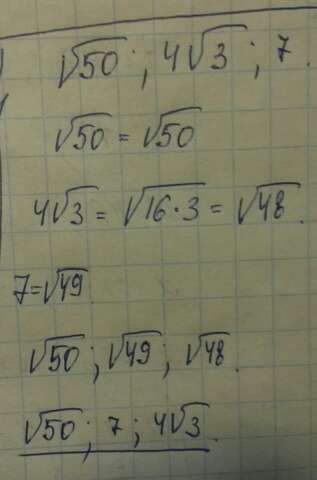 √50 ; 4√3 ; 7.
√50 = √50
4√3 = √16·3 = √48.
7=√49
√50 ; √49 ; √48.
√50 ; 7 ; 4√3.